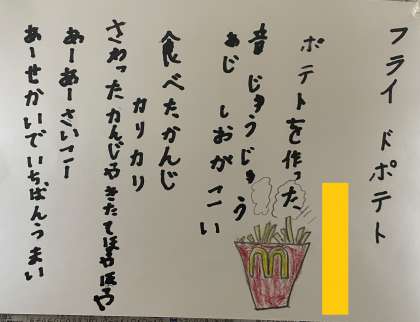 フライドポテト
ポテトを作った
音じゅうじゅう
あじ しおがこい
食べたかんじ
カリカリ
さわったかんじやきたてほやほや
あーあーさいこー
あーせかいでいちばんうまい
M